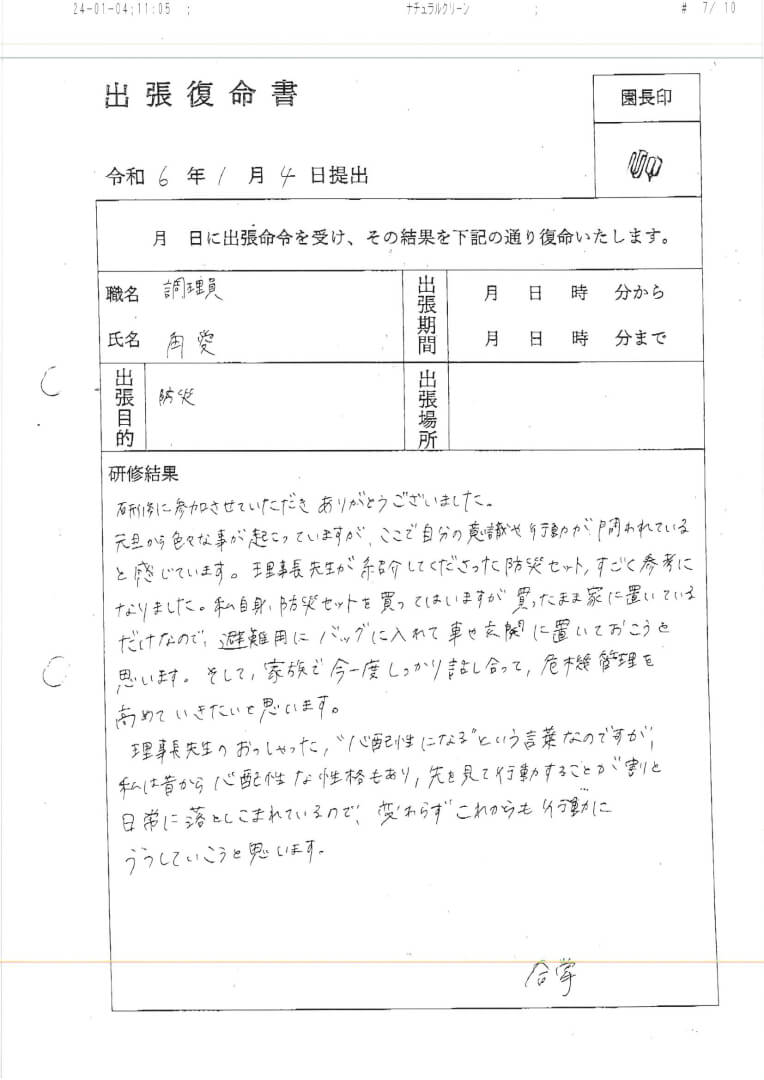 24-01-04;11:05 ; ナチュラルクリーン ; # 7/ 10
出張復命書
園長印
令和 6 年 1 月 4 日提出
月 日に出張命令を受け、その結果を下記の通り復命いたします。
職名 調理員
氏名 角 愛
出張期間
月 日 時 分から
月 日 時 分まで
出張目的
防災
出張場所
研修結果
研修に参加させていただき ありがとうございました。
元旦から色々な事が起こっていますが、ここで自分の意識や行動が問われている
と感じています。理事長先生が紹介してくださった防災セット、すごく参考に
なりました。私自身、防災セットを買ってはいますが買ったまま家に置いている
だけなので、避難用にバッグに入れて車や玄関に置いておこうと
思います。そして、家族で今一度しっかり話し合って、危機管理を
高めていきたいと思います。
理事長先生のおっしゃった、“心配性になる”という言葉なのですが、
私は昔から心配性な性格もあり、先を見て行動することが割と
日常に落としこまれているので、変わらずこれからも行動に
うつしていこうと思います。
合掌